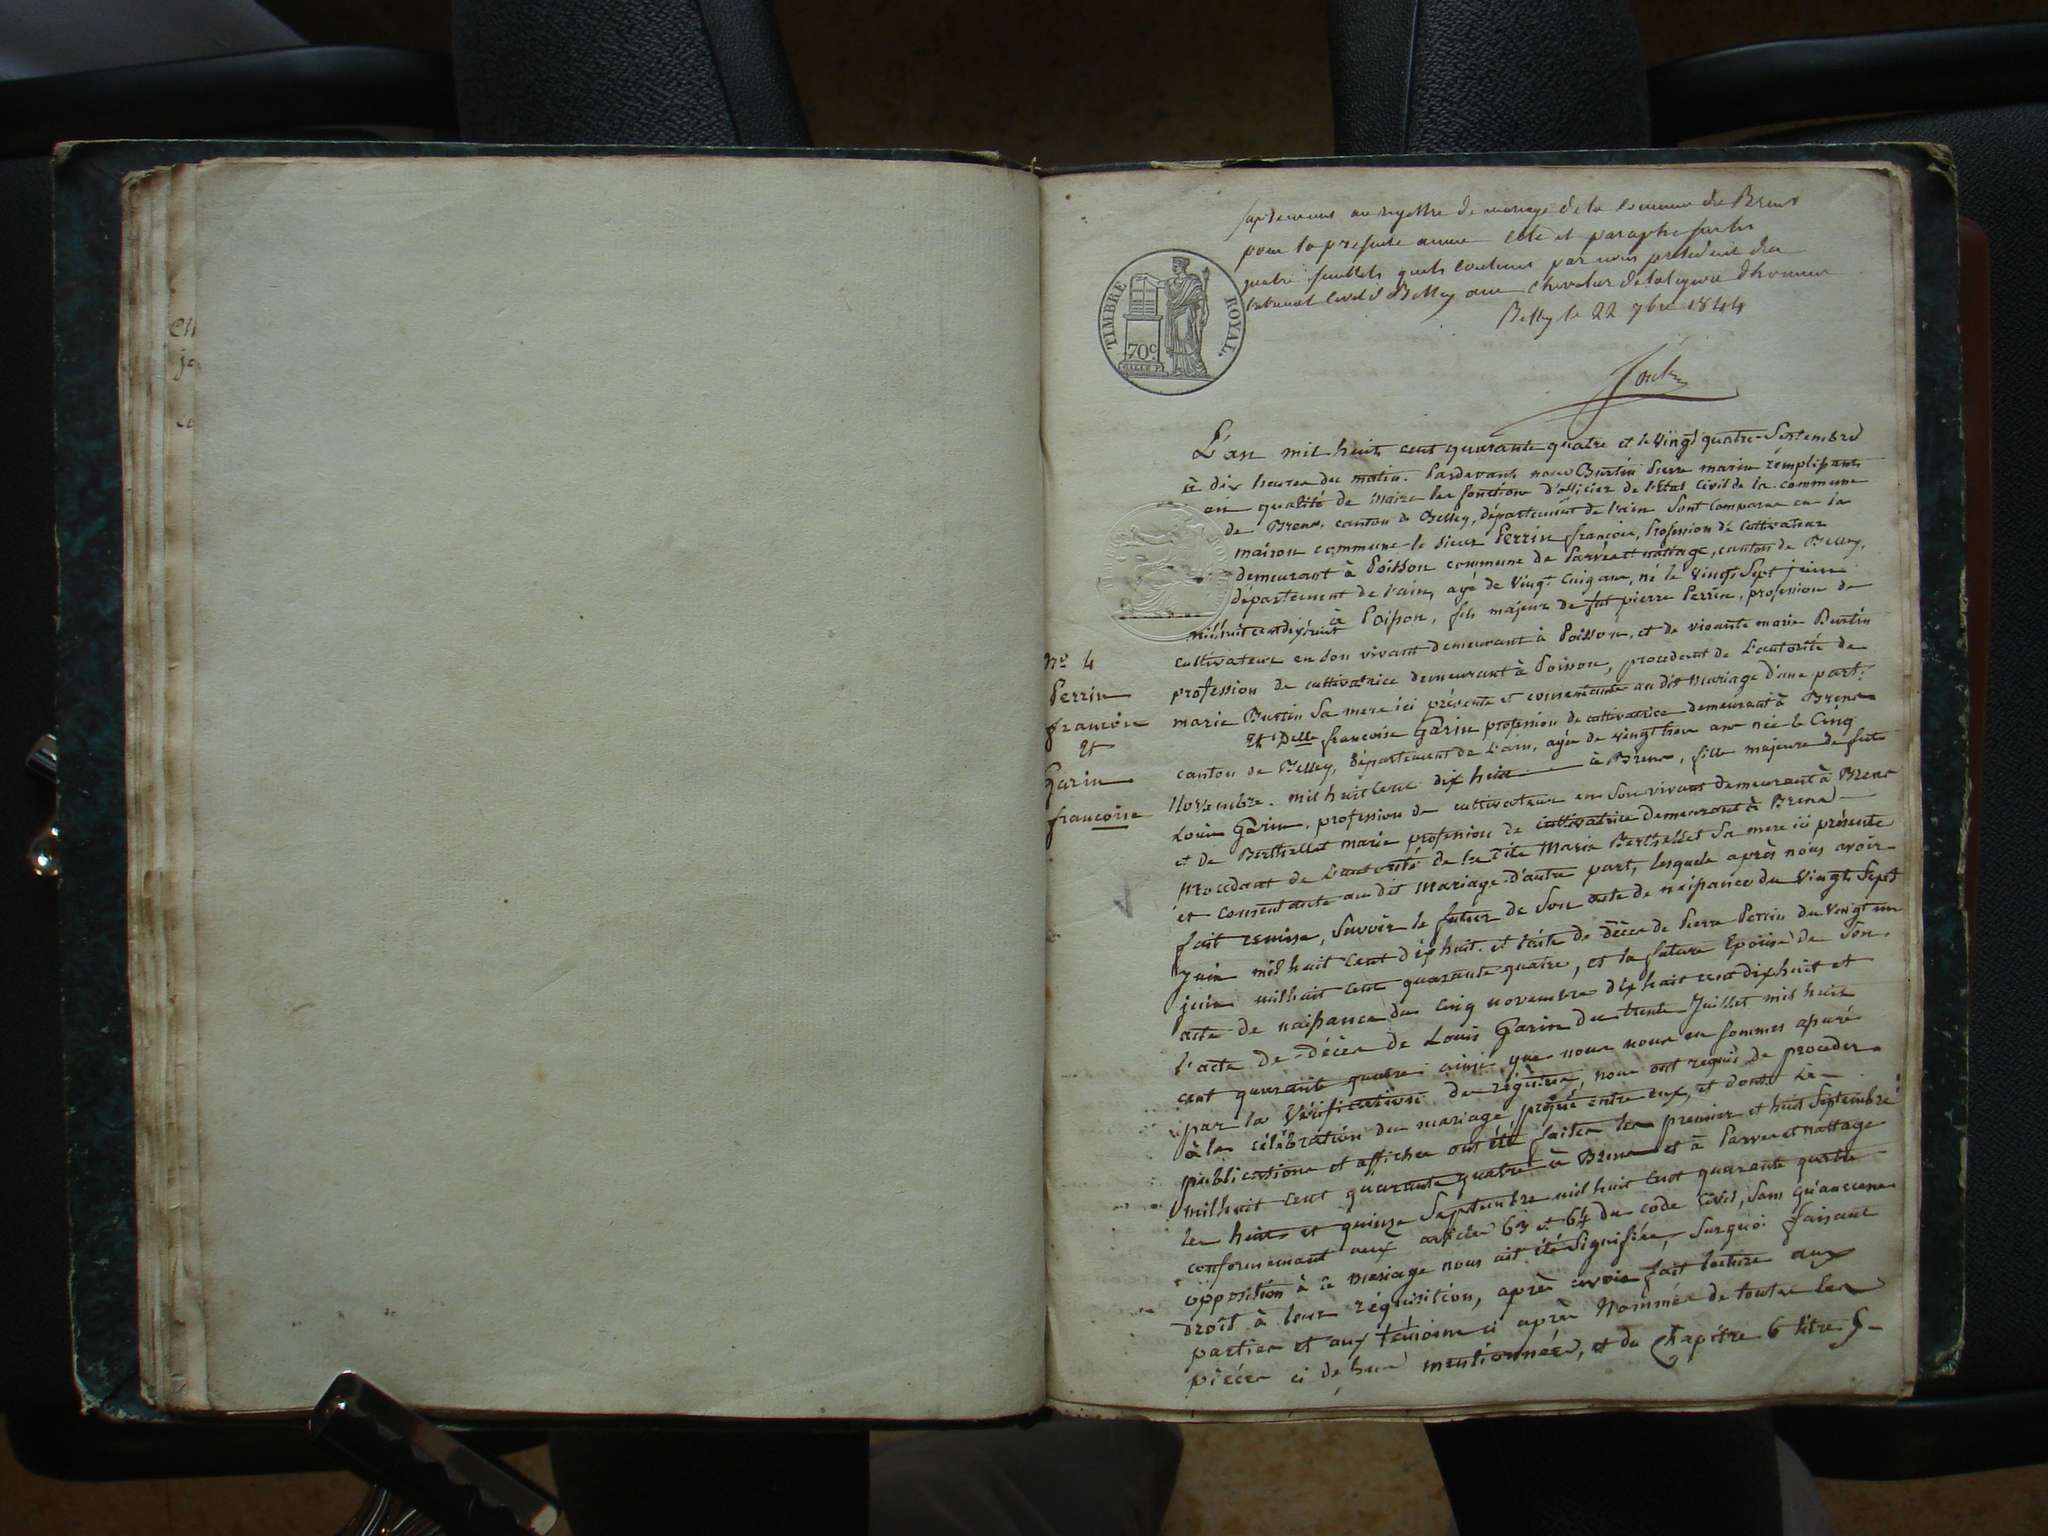 Supplement au registre de mariage de la commune de Brens
pour la presente annee coté et paraphé sur les
quatre feuillets quels contenus par nous president du
tribunal civil de Belley chevalier de la legion d'honneur
Belley le 22 7bre 1844
TIMBRE ROYAL.
70c
L'an mil huit cent quarante quatre et le vingt quatre Septembre
à dix heures du matin. Pardevant nous Burtin Pierre marin remplissant
en qualité de Maire les fonctions d'officier de l'Etat Civil de la commune
de Brens, canton de Belley, département de l'ain Sont Comparus en la
maison commune le sieur Perrin françois, Profession de Cultivateur
demeurant à Poisson commune de Parves et nattage, canton de Belley,
département de l'ain, agé de Vingt Cinq ans, né le Vingt Sept juin
mil huit cent dix huit à Poisson, fils majeur de fut pierre Perrin, profession de
cultivateur en son vivant demeurant à Poisson, et de vivante marie Burtin
profession de cultivatrice demeurant à Poisson, procedant de L'autorité de
marie Burtin Sa mere ici présente et consentante au dit Mariage d'une part;
Et Delle françoise Garin profession de cultivatrice demeurant à Brens
canton de Belley, département de L'ain, agée de vingt ans née le Cinq
Novembre mil huit cent dix huit à Brens, fille majeure de fut
Louis Garin, profession de cultivateur en Son vivant demeurant à Brens
et de Berthellet marie profession de cultivatrice demeurant à Brens
procedant de L'autorité de la dite Marie Berthellet Sa mere ici présente
et consentante au dit Mariage d'autre part, lesquels après nous avoir
fait remise, Savoir le futur de Son acte de naissance du Vingt Sept
Juin mil huit cent dix huit et l'acte de Décès de Pierre Perrin du vingt un
juin mil huit cent quarante quatre, et la future Epouse de Son
acte de naissance du Cinq novembre dix huit cent dix huit et
l'acte de Décès de Louis Garin du trente Juillet mil huit
cent quarante quatre ainsi que nous nous en sommes apuré
par la Vérification des régistres, nous ont requis de proceder
à la célébration du mariage projeté entre eux, et dont Les
publications et affiches ont été faites les premier et huit Septembre
mil huit cent quarante quatre à Brens et à Parves et nattage
les huit et quinze Septembre mil huit cent quarante quatre
conformément aux articles 63 et 64 du code Civil, Sans qu'aucune
opposition à ce mariage nous ait été Signifiée, Surquoi faisant
Droit à leur réquisition, après avoir fait lecture aux
parties et aux témoins ci après Nommés de toutes les
pièces ci dessus mentionnées, et du Chapitre 6 titre 5
No 4
Perrin
françois
Et
Garin
françoise